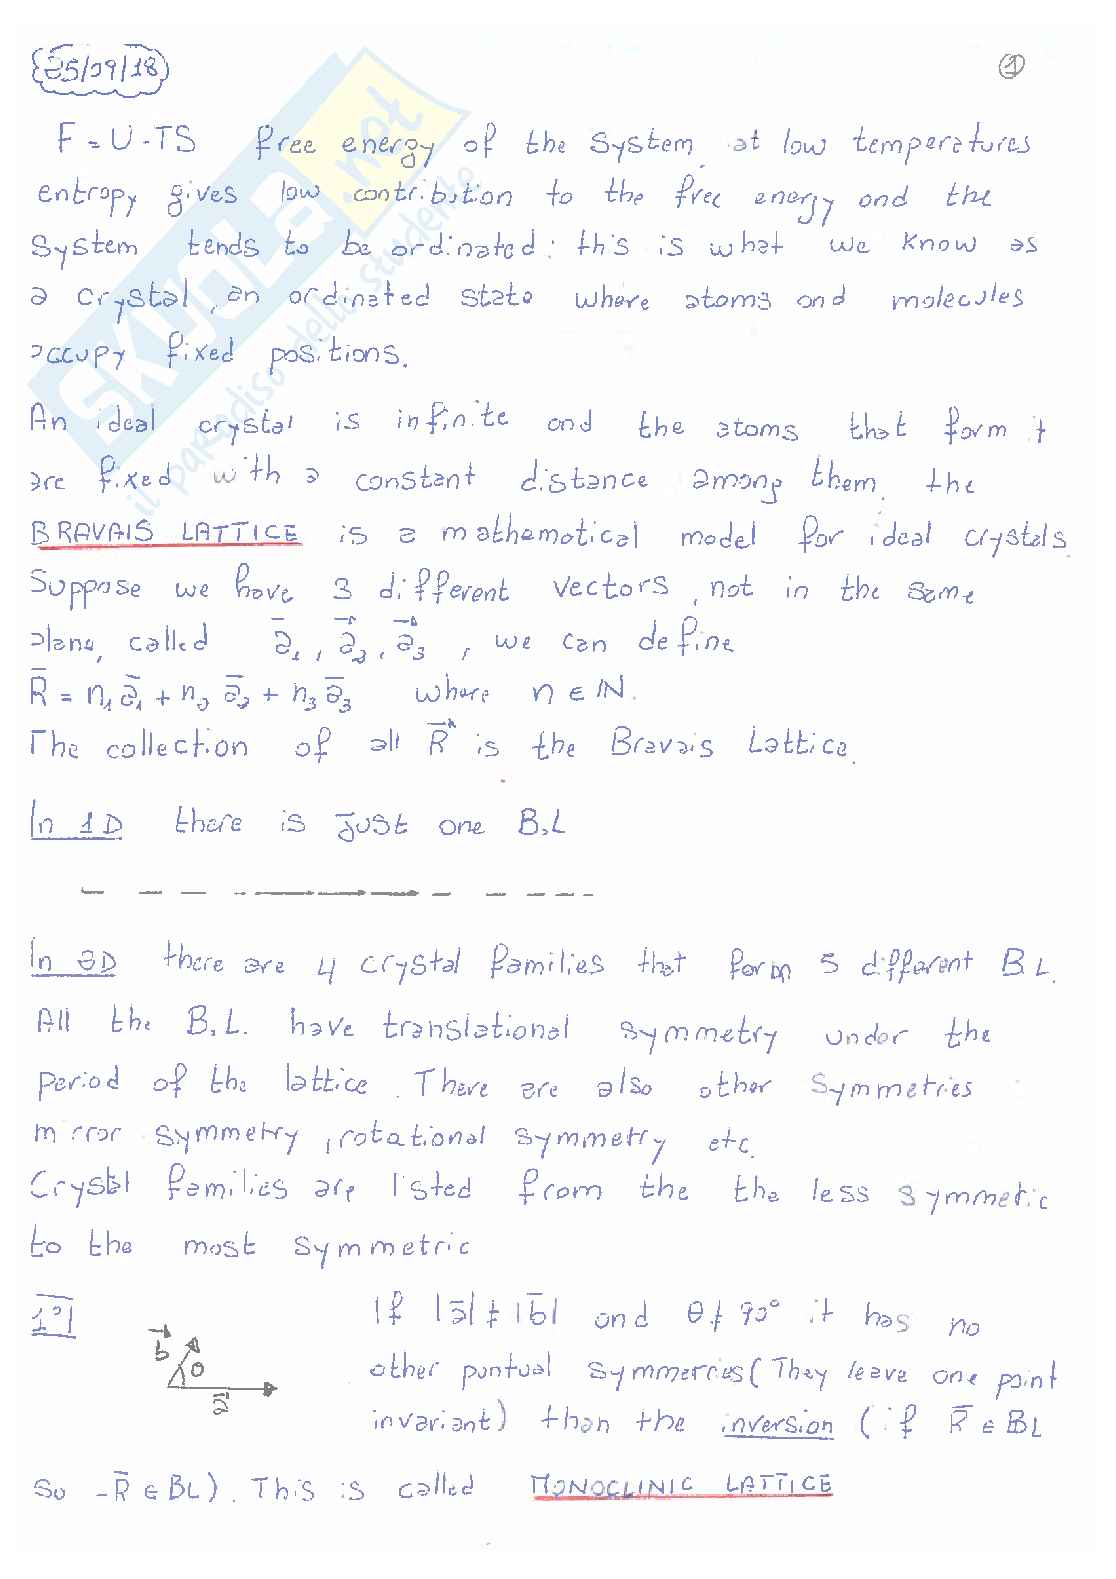 25/09/18
1
F = U - TS free energy of the system, at low temperatures
entropy gives low contribution to the free energy and the
system tends to be ordinated: this is what we know as
a crystal, an ordinated state where atoms and molecules
occupy fixed positions.
An ideal crystal is infinite and the atoms that form it
are fixed with a constant distance among them. the
BRAVAIS LATTICE is a mathematical model for ideal crystals.
Suppose we have 3 different vectors, not in the same
plane, called a̅₁, a⃗₂, a⃗₃, we can define
R̅ = n₁a̅₁ + n₂a̅₂ + n₃a̅₃ where n ∈ ℕ.
The collection of all R⃗ is the Bravais Lattice.
In 1D there is just one B.L
In 2D there are 4 crystal families that form 5 different B.L.
All the B.L. have translational symmetry under the
period of the lattice. There are also other symmetries
mirror symmetry, rotational symmetry etc.
Crystal families are listed from the the less symmetric
to the most symmetric
1°|
If |a̅| ≠ |b̅| and θ ≠ 90° it has no
b⃗ θ
other puntual symmetries (They leave one point
a⃗
invariant) than the inversion (if R̅ ∈ BL
so -R̅ ∈ BL). This is called MONOCLINIC LATTICE
SKUOLA.not
il paradiso dello studente